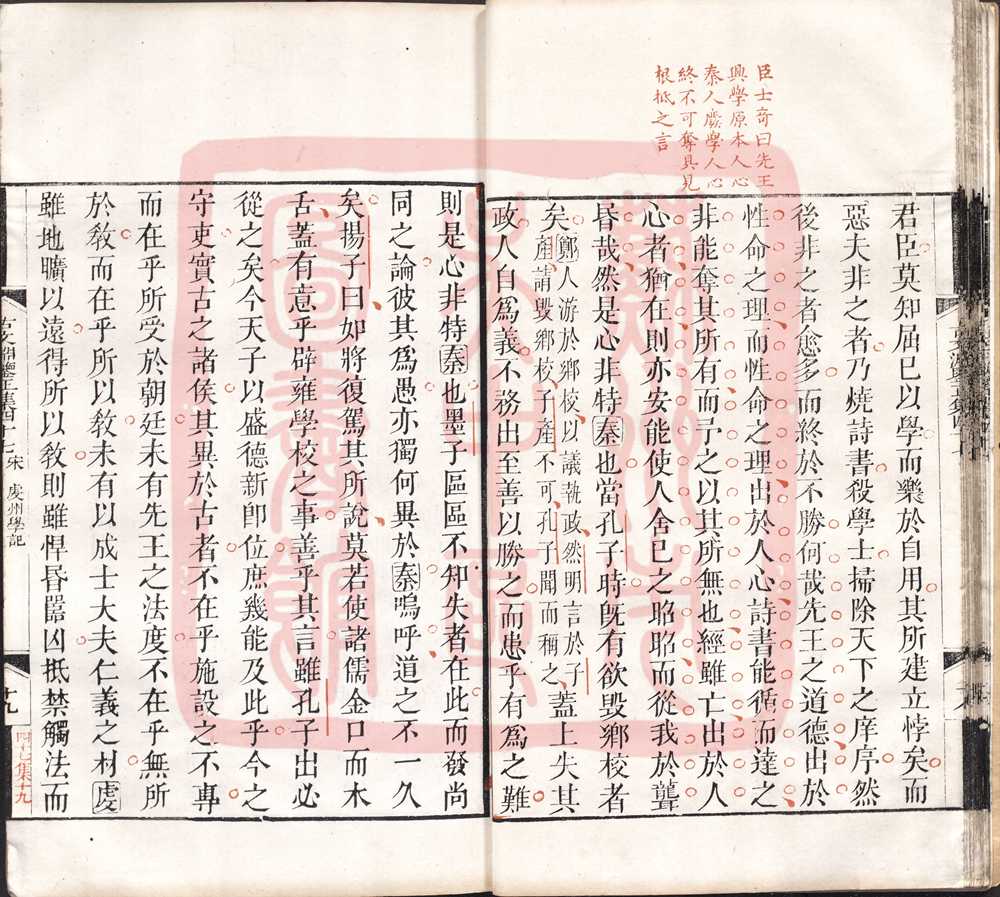 臣士奇曰先王
興學原本人心
秦人廢學人心
終不可奪具見
根柢之言
君臣莫知屈已以學而樂於自用其所建立悖矣而
惡夫非之者乃燒詩書殺學士掃除天下之庠序然
後非之者愈多而終於不勝何哉先王之道德出於
性命之理而性命之理出於人心詩書能循而達之
非能奪其所有而予之以其所無也經雖亡出於人
心者猶在則亦安能使人舍已之昭昭而從我於聾
昏哉然是心非特秦也當孔子時旣有欲毀鄉校者
矣鄭人游於鄉校以議執政然明言於子
產請毀鄉校子產不可孔子聞而稱之蓋上失其
政人自爲義不務出至善以勝之而患乎有爲之難
則是心非特秦也墨子區區不知失者在此而發尚
同之論彼其爲愚亦獨何異於秦嗚呼道之不一久
矣揚子曰如將復駕其所說莫若使諸儒金口而木
舌蓋有意乎辟雍學校之事善乎其言雖孔子出必
從之矣今天子以盛德新卽位庶幾能及此乎今之
守吏實古之諸侯其異於古者不在乎施設之不專
而在乎所受於朝廷未有先王之法度不在乎無所
於教而在乎所以教未有以成士大夫仁義之材虔
雖地曠以遠得所以教則雖悍昏嚚凶抵禁觸法而
古文淵鑒正集四十七 宋 虔州學記
十九
四十七集十九